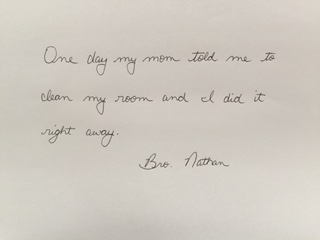 One day my mom told me to
clean my room and I did it
right away.
Bro. Nathan